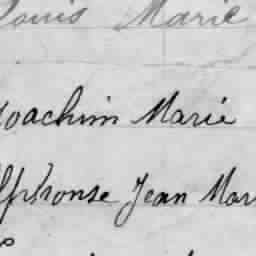 Louis Marie
Joachim Marie
Alphonse Jean Mari